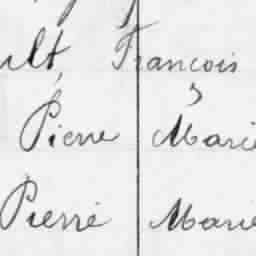 ult, François
Pierre Marie
Pierre Marie